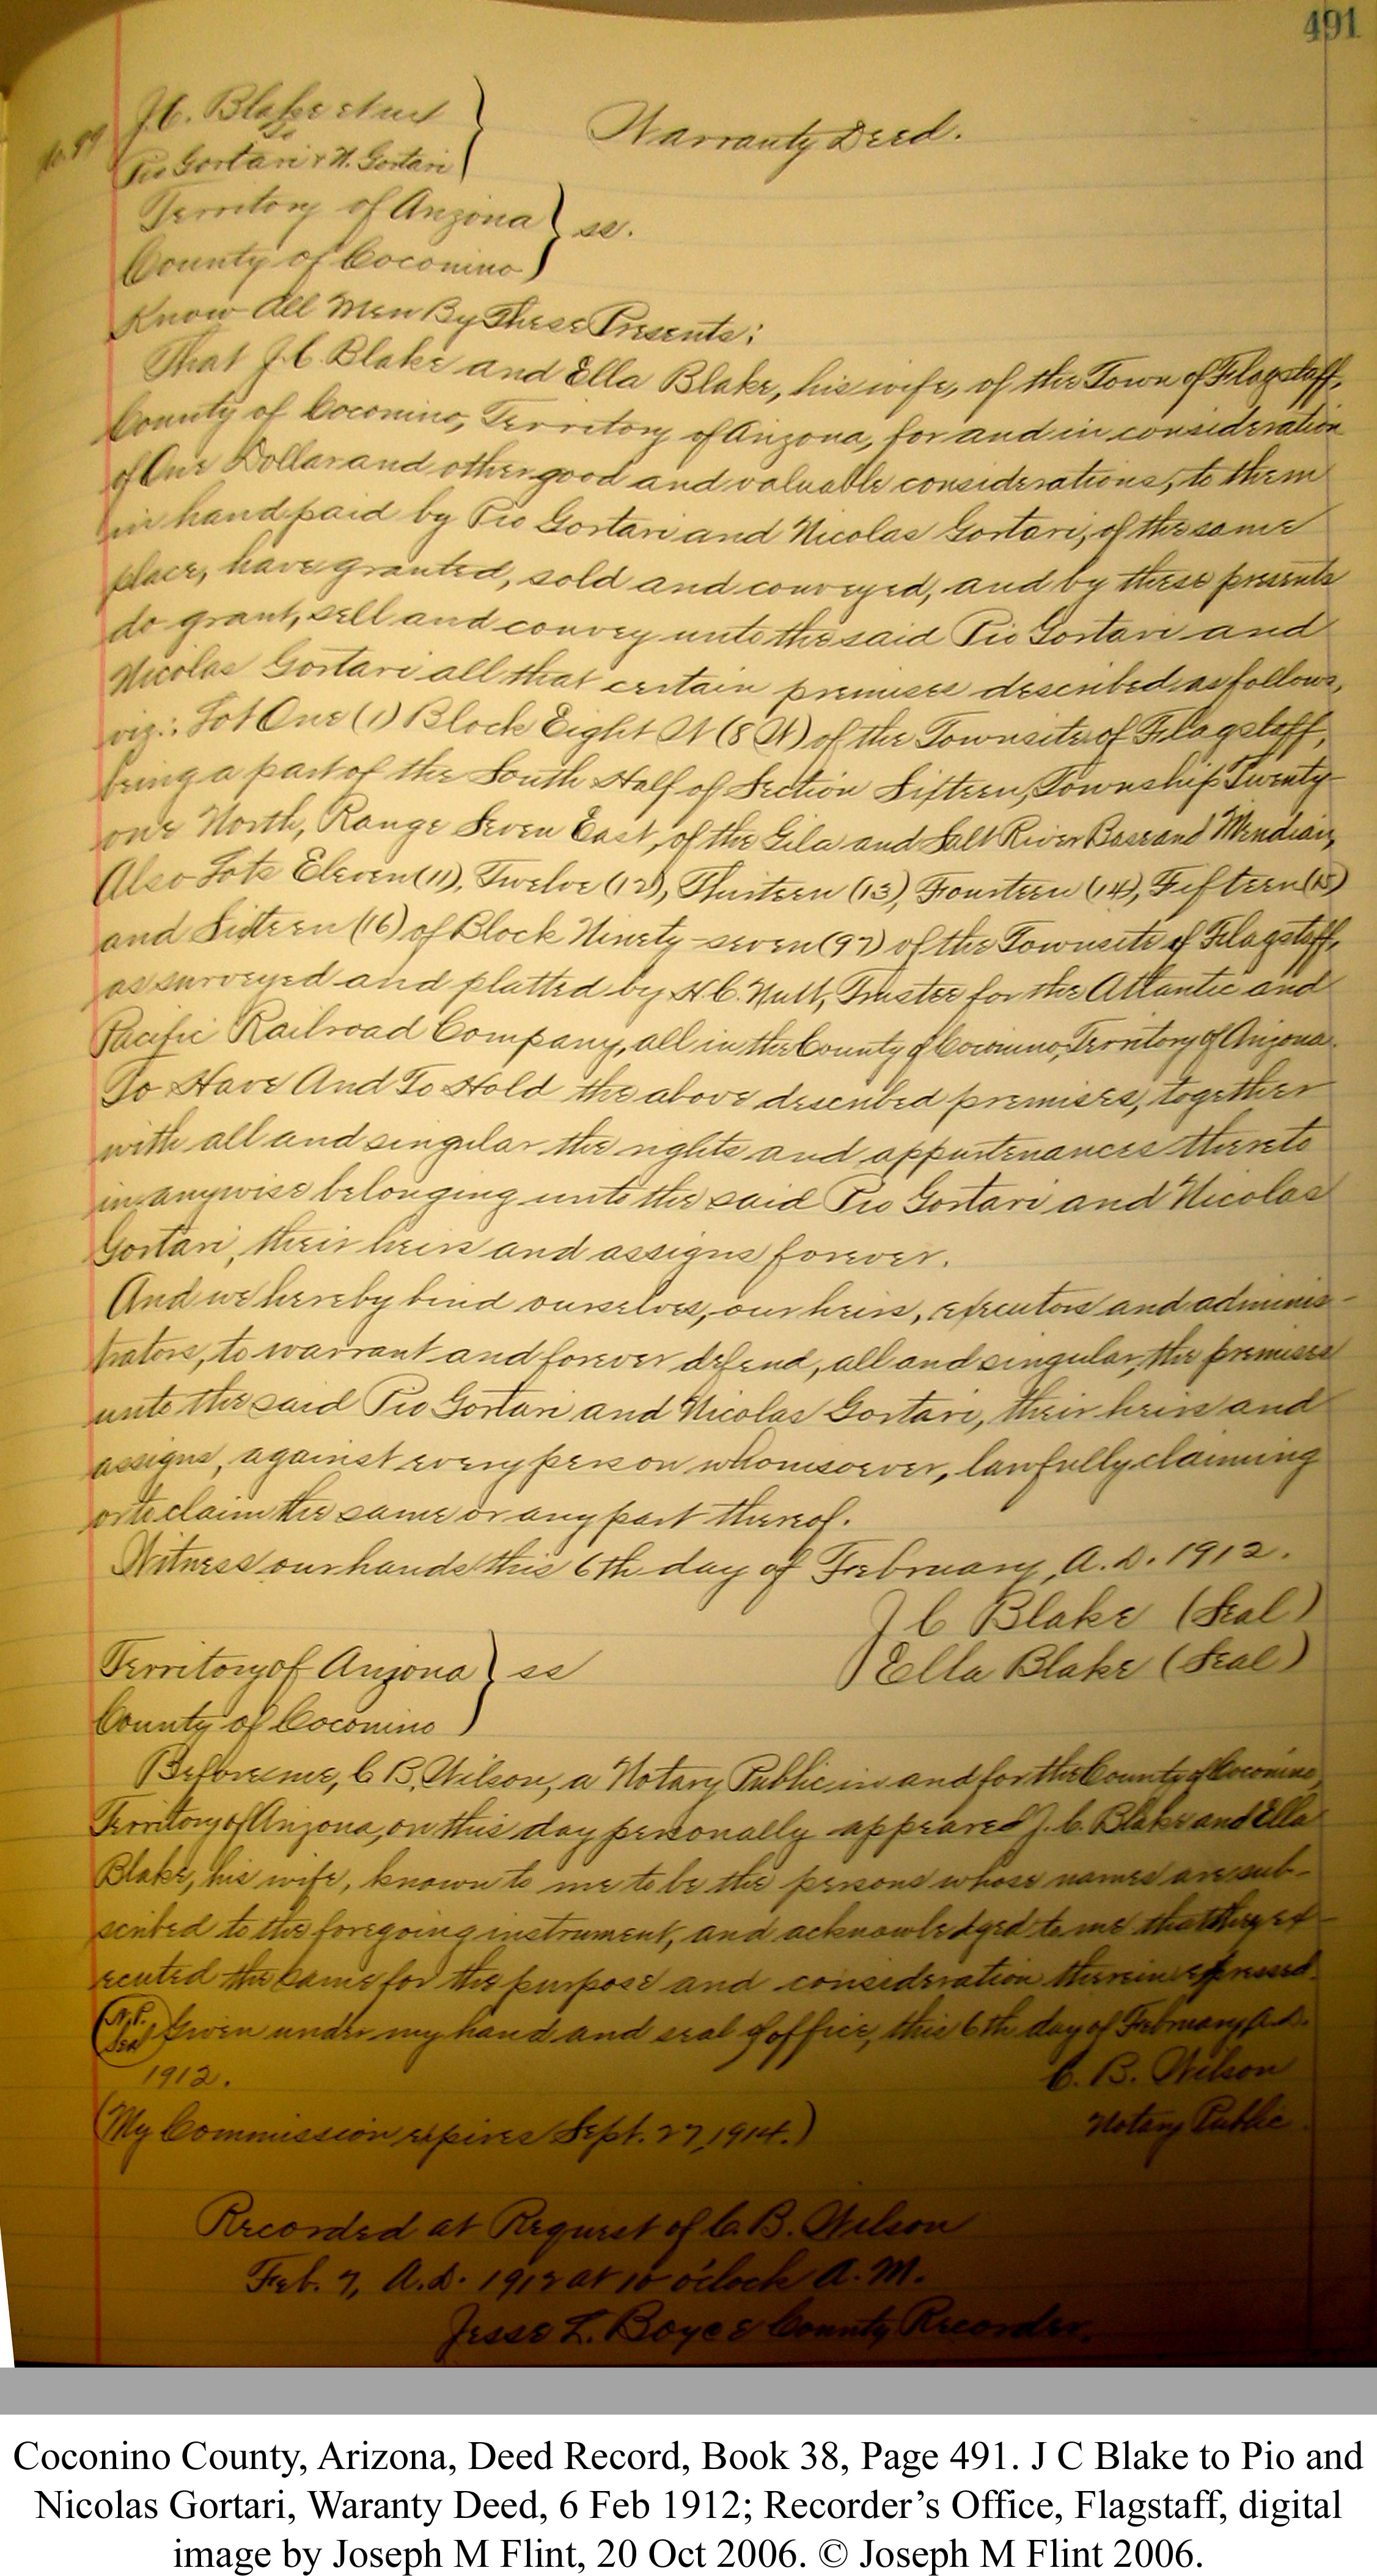 491
J.C. Blake et ux
to
Pio Gortari & N. Gortari
Warranty Deed.
Territory of Arizona
ss.
County of Coconino
Know All Men By These Presents:
That J.C. Blake and Ella Blake, his wife, of the Town of Flagstaff,
County of Coconino, Territory of Arizona, for and in consideration
of One Dollar and other good and valuable considerations, to them
in hand paid by Pio Gortari and Nicolas Gortari, of the same
place, have granted, sold and conveyed, and by these presents
do grant, sell and convey unto the said Pio Gortari and
Nicolas Gortari all that certain premises described as follows,
viz: Lot One (1) Block Eight A (8 A) of the Townsite of Flagstaff,
being a part of the South Half of Section Sixteen, Township Twenty-
one North, Range Seven East, of the Gila and Salt River Base and Meridian,
Also Lots Eleven (11), Twelve (12), Thirteen (13), Fourteen (14), Fifteen (15)
and Sixteen (16) of Block Ninety-seven (97) of the Townsite of Flagstaff,
as surveyed and platted by H.C. Nutt, Trustee for the Atlantic and
Pacific Railroad Company, all in the County of Coconino, Territory of Arizona.
To Have And To Hold the above described premises, together
with all and singular the rights and appurtenances thereto
in anywise belonging unto the said Pio Gortari and Nicolas
Gortari, their heirs and assigns forever.
And we hereby bind ourselves, our heirs, executors and adminis-
trators, to warrant and forever defend, all and singular, the premises
unto the said Pio Gortari and Nicolas Gortari, their heirs and
assigns, against every person whomsoever, lawfully claiming
or to claim the same or any part thereof.
Witness our hands this 6th day of February, A.D. 1912.
J C Blake (Seal)
Ella Blake (Seal)
Territory of Arizona
ss
County of Coconino
Before me, C B. Wilson, a Notary Public in and for the County of Coconino,
Territory of Arizona, on this day personally appeared J.C. Blake and Ella
Blake, his wife, known to me to be the persons whose names are sub-
scribed to the foregoing instrument, and acknowledged to me that they ex-
ecuted the same for the purpose and consideration therein expressed.
(N.P. Seal) Given under my hand and seal of office, this 6th day of February, A.D.
1912.
C. B. Wilson
(My Commission expires Sept. 27, 1914.)
Notary Public
Recorded at Request of C. B. Wilson
Feb. 7, A.D. 1912 at 10 o'clock A.M.
Jesse L. Boyce County Recorder.
Coconino County, Arizona, Deed Record, Book 38, Page 491. J C Blake to Pio and
Nicolas Gortari, Waranty Deed, 6 Feb 1912; Recorder’s Office, Flagstaff, digital
image by Joseph M Flint, 20 Oct 2006. © Joseph M Flint 2006.